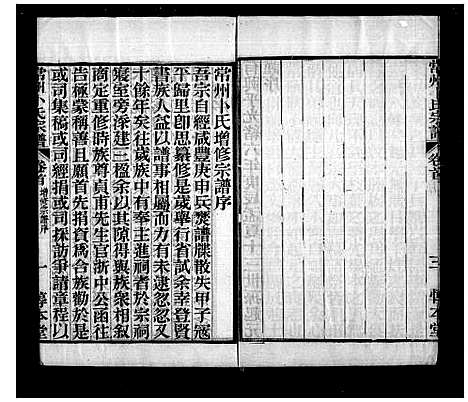 常州卜氏增修宗譜序
吾宗自經咸豐庚申兵燹譜牒散失甲子冦
平歸里卽思纂修是歲舉行省試余幸登賢
書族人益以譜事相屬而力有未逮忽忽又
十餘年矣往歲族中有奉主進祠者於宗祠
寢室旁添建三楹余以其隙得與族衆相叙
商定重修時族尊貞甫先生官浙中公函往
吿極蒙稱善且願首先捐資爲合族勸於是
或司集稿或司經捐或司採訪爭請章程以
常州卜氏宗譜
卷首
增修宗譜序
一
惇本堂
常州卜氏宗譜
卷首
三
惇本堂